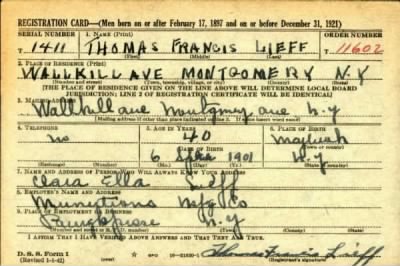 REGISTRATION CARD—(Men born on or after February 17, 1897 and on or before December 31, 1921)
SERIAL NUMBER 1. NAME (Print) ORDER NUMBER
T 1411 THOMAS FRANCIS LIEFF T 11602
(First) (Middle) (Last)
2. PLACE OF RESIDENCE (Print)
WALLKILL AVE MONTGOMERY N.Y
(Number and street) (Town, township, village, or city) (County) (State)
[THE PLACE OF RESIDENCE GIVEN ON THE LINE ABOVE WILL DETERMINE LOCAL BOARD
JURISDICTION; LINE 2 OF REGISTRATION CERTIFICATE WILL BE IDENTICAL]
3. MAILING ADDRESS
Wallkill ave ave N-Y
[Mailing address if other than place indicated on line 2. If same insert word same]
4. TELEPHONE 5. AGE IN YEARS 6. PLACE OF BIRTH
no 40
DATE OF BIRTH
6 1901 N.Y
(Exchange) (Number) (Mo.) (Day) (Yr.) (State or country)
7. NAME AND ADDRESS OF PERSON WHO WILL ALWAYS KNOW YOUR ADDRESS
Ella Lieff
8. EMPLOYER'S NAME AND ADDRESS
Munitions Mfg Co
9. PLACE OF EMPLOYMENT OR BUSINESS
N.Y
(Number and street or R. F. D. number) (Town) (County) (State)
I AFFIRM THAT I HAVE VERIFIED ABOVE ANSWERS AND THAT THEY ARE TRUE.
D. S. S. Form 1
(Revised 1-1-42) (over) 16-21630-1 Thomas Francis Lieff
(Registrant's signature)